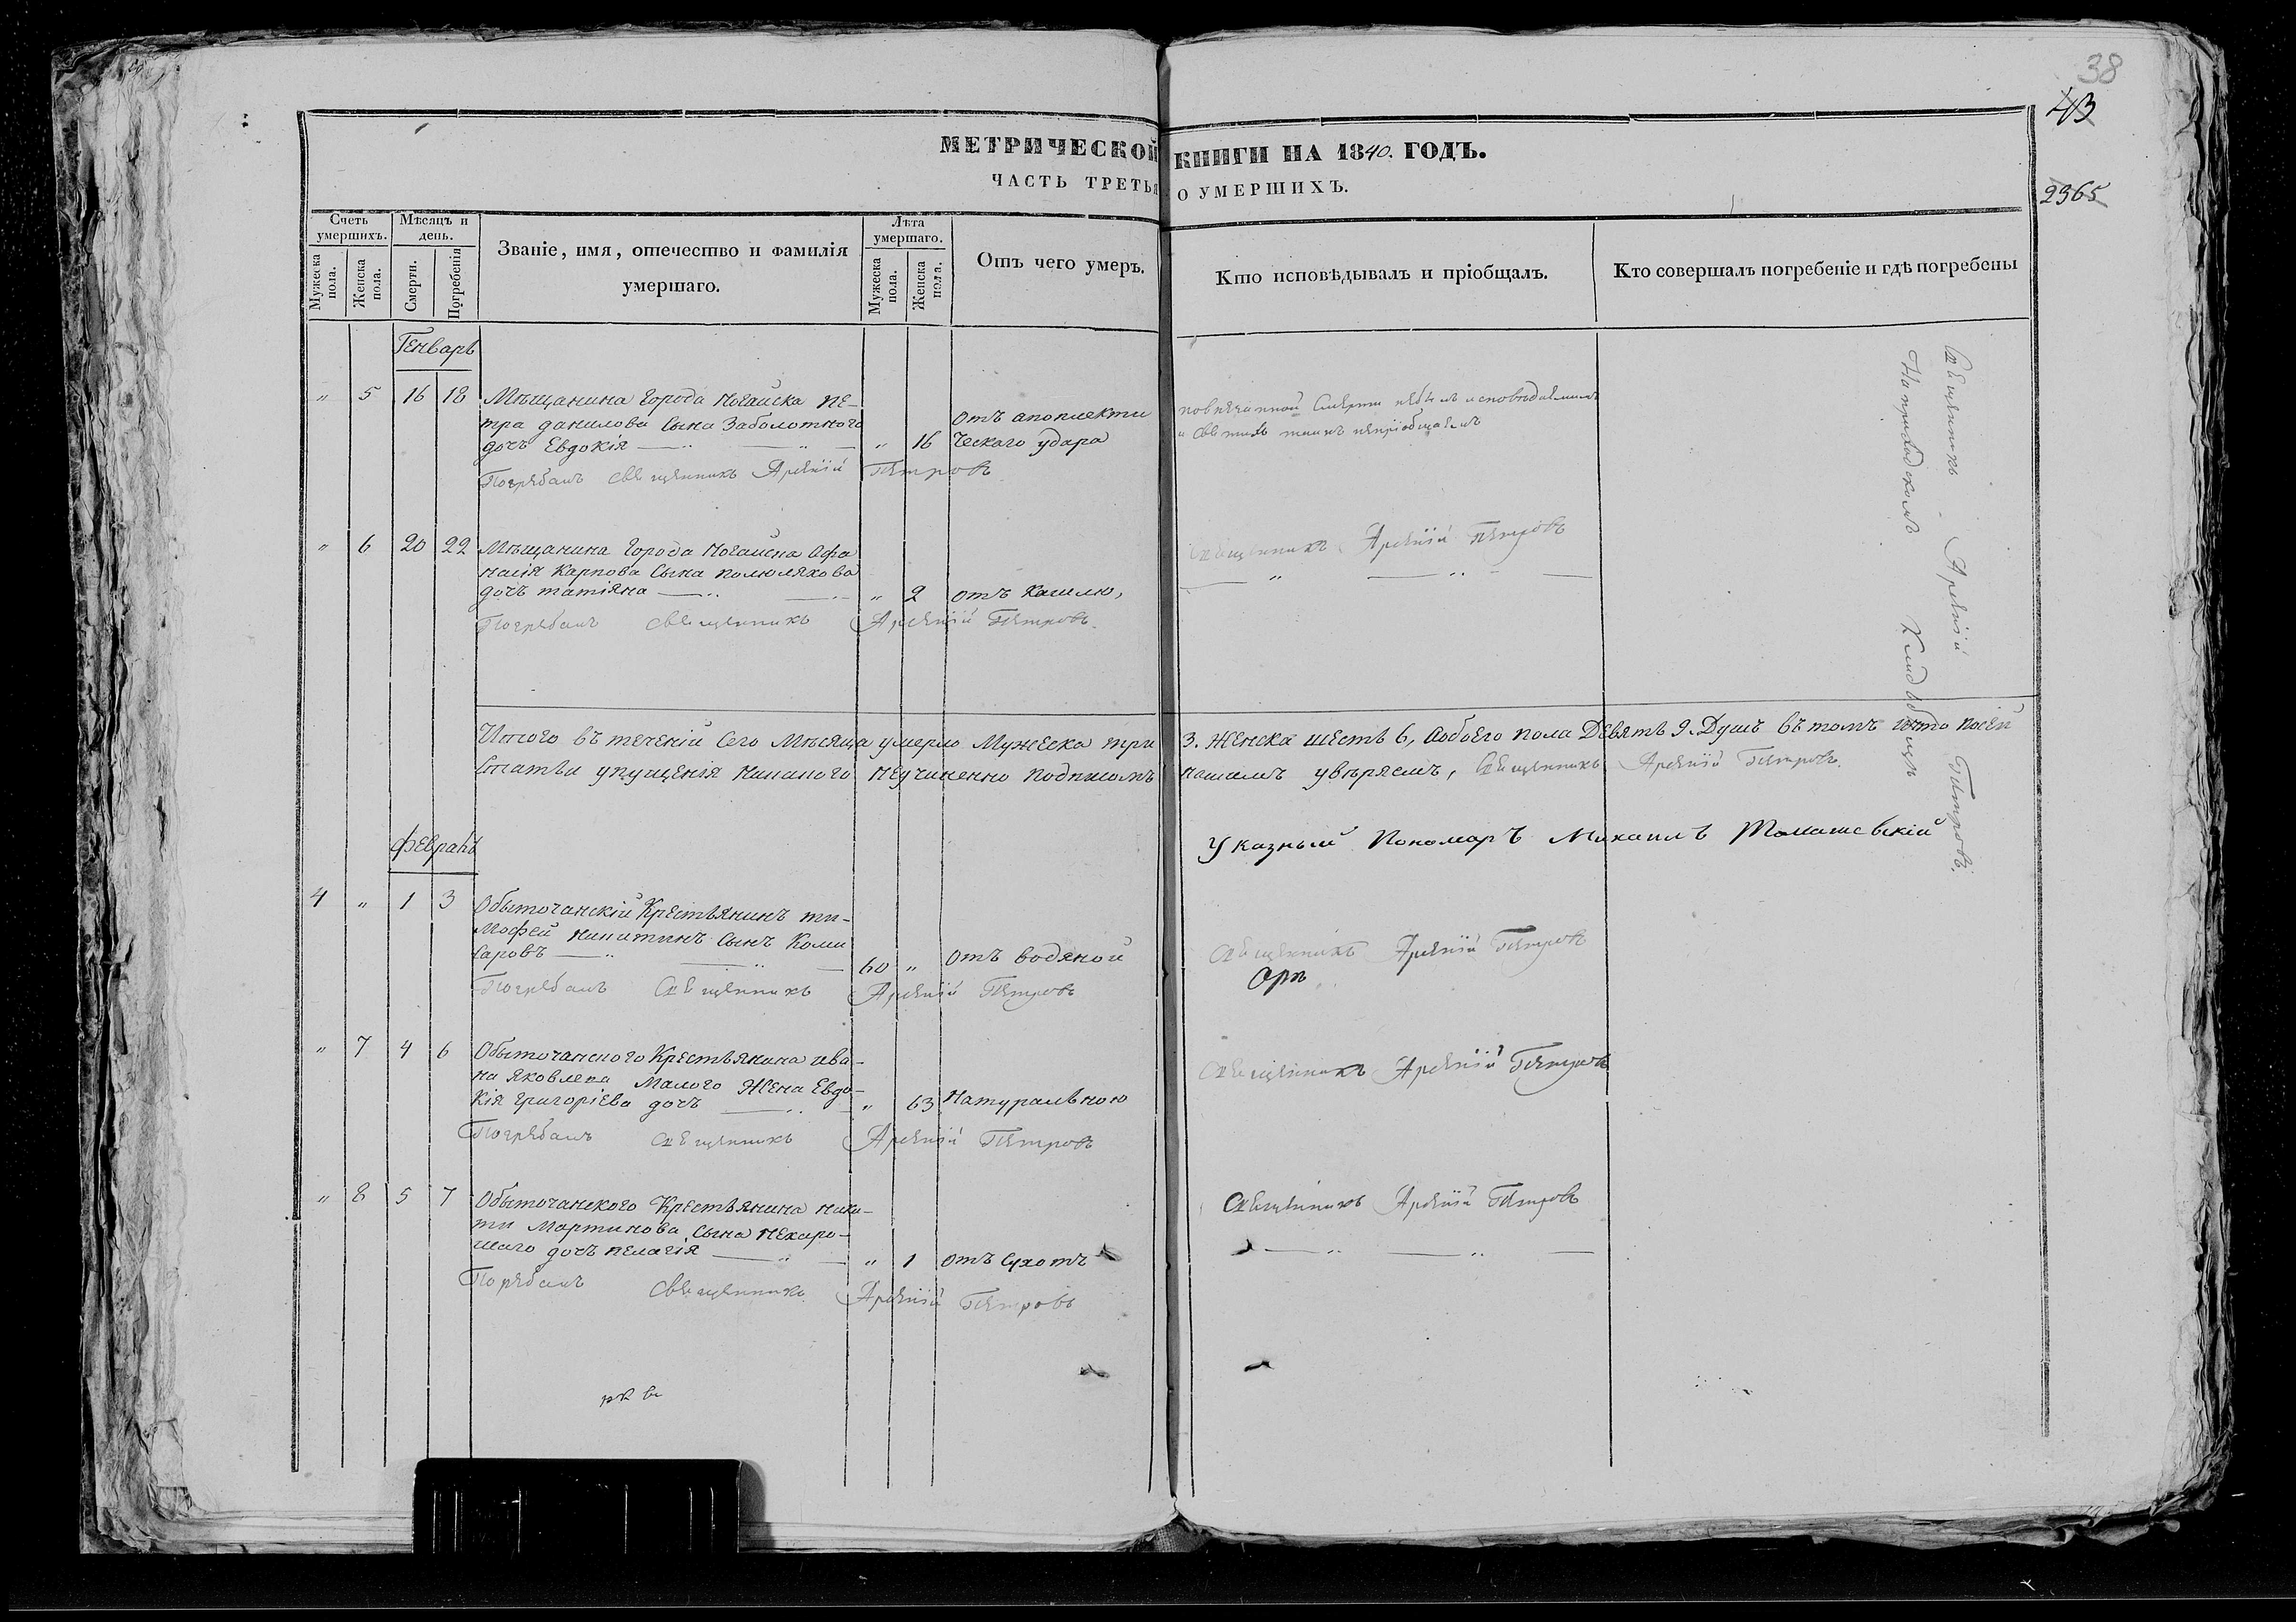 38
43
2365
МЕТРИЧЕСКОЙ КНИГИ НА 1840. ГОДЪ.
ЧАСТЬ ТРЕТЬЯ О УМЕРШИХЪ.
Счетъ умершихъ.
Мужеска пола.
Женска пола.
Мѣсяцъ и день.
Смерти.
Погребенія
Званіе, имя, отечество и фамилія
умершаго.
Лѣта умершаго.
Мужеска пола.
Женска пола.
Отъ чего умеръ.
Кто исповѣдывалъ и пріобщалъ.
Кто совершалъ погребеніе и гдѣ погребены
Генварь
" 5 16 18 Мѣщанина города Ногайска пе-
тра данилова сына Заболотного
дочь Евдокія " 16
отъ апоплекти
ческаго удара
по внезапной смерти небылъ исповѣдаемъ
и святыхъ таинъ непріобщаемъ
Погребалъ священникъ Арсеній Петровъ
" 6 20 22 Мѣщанина города Ногайска Афа
насія Карпова сына
дочь татіяна " 2 отъ кашлю,
Священникъ Арсеній Петровъ
Погребалъ священникъ Арсеній Петровъ.
Священникъ Арсеній Петровъ.
На приходскомъ Кладбищѣ
Итого въ теченіи сего Мѣсяца умерло Мужеска три 3. Женска шесть 6, Аобоего пола Девять 9. Душъ въ томъ что посей
статьи упущенія никакого неучиненно подписомъ нашимъ увѣряемъ, Священникъ Арсеній Петровъ.
Указный Пономарь Михаилъ Томашевскій
февраль
4 " 1 3 Обыточанскій Крестьянинъ ти-
мофей никитинъ сынъ Коми
саровъ 60 " отъ водяной
Священникъ Арсеній Петровъ
Арп
Погребалъ Священникъ Арсеній Петровъ
" 7 4 6 Обыточанского Крестьянина ива-
на яковлева Малого Жена Евдо-
кія григоріева дочь " 63 Натуральною
Священникъ Арсеній Петровъ
Погребалъ Священникъ Арсеній Петровъ
" 8 5 7 Обыточанского Крестьянина ники-
ти Мартинова сына нехоро-
шаго дочь пелагія " 1 отъ сухотъ
Священникъ Арсеній Петровъ
Погребалъ Священникъ Арсеній Петровъ